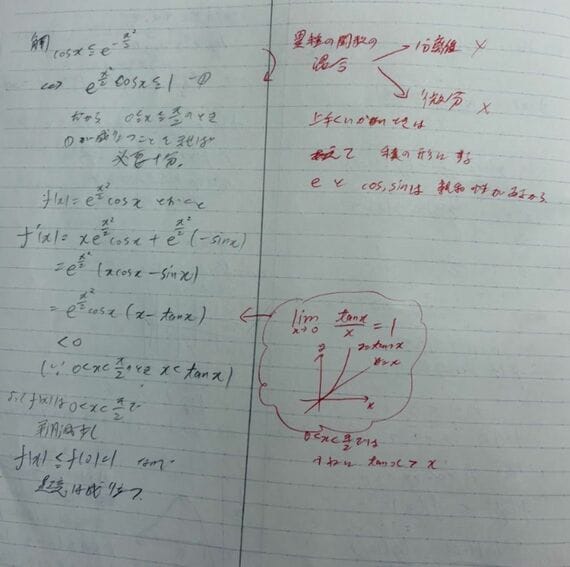 解
cosx ≦ e^{-x²/2}
⇔ e^{x²/2} cosx ≦ 1 ー①
だから 0≦x≦π/2 のとき
①が成り立つことを示せば
必要十分。
f(x) = e^{x²/2} cosx とおくと
f'(x) = x e^{x²/2} cosx + e^{x²/2} (-sinx)
= e^{x²/2} (xcosx - sinx)
= e^{x²/2} cosx (x - tanx)
< 0
(∵ 0<x<π/2 において x < tanx)
よって f(x)は 0<x<π/2 で
単調減少し
f(x) ≦ f(0)=1
題意は成り立つ
異種の関数の
混合
分離 ×
微分 ×
上手くいかないときは
積の形にする
e と cos, sinは 親和性があるから
lim_{x→0} tanx/x = 1
z=tanx
z=x
z
x
0<x<π/2 では
つねに tanx > x